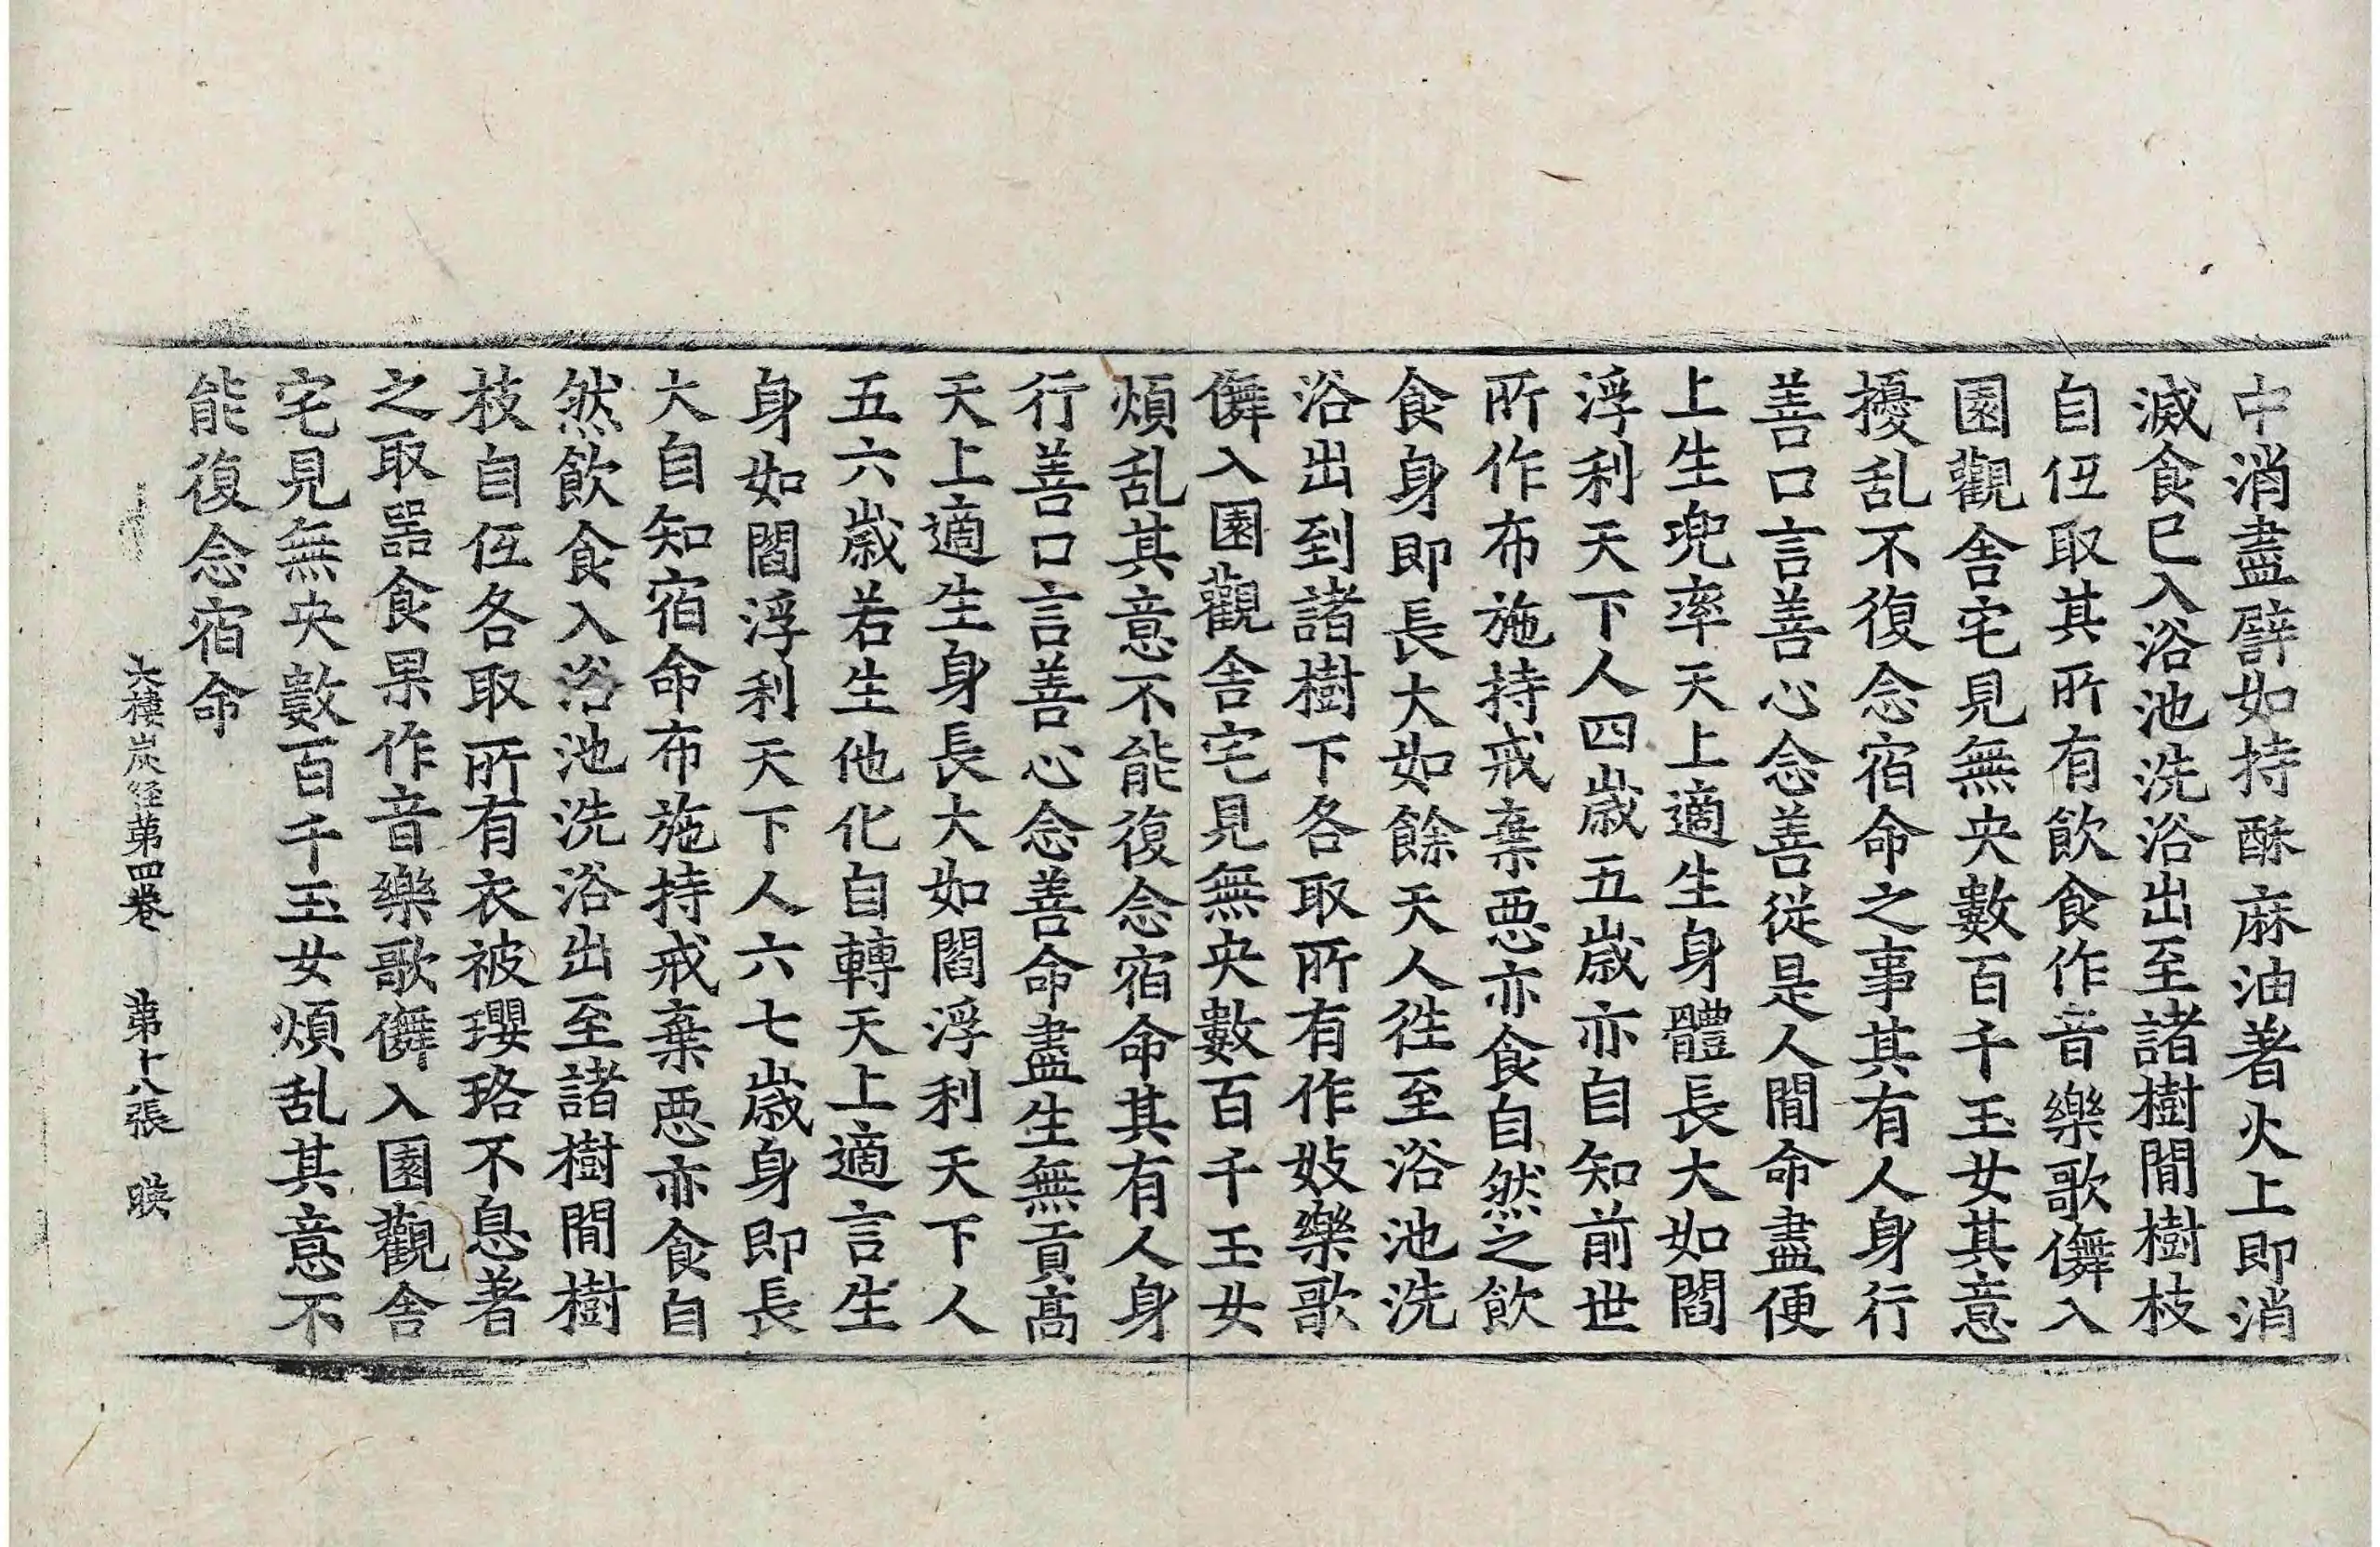 中消盡譬如持酥麻油著火上即消
滅食已入浴池洗浴出至諸樹間樹枝
自伍取其所有飲食作音樂歌儛入
園觀舍宅見無央數百千玉女其意
擾乱不復念宿命之事其有人身行
善口言善心念善從是人間命盡便
上生兜率天上適生身體長大如閻
浮利天下人四歲五歲亦自知前世
所作布施持戒棄惡亦食自然之飲
食身即長大如餘天人徃至浴池洗
浴出到諸樹下各取所有作妓樂歌
儛入園觀舍宅見無央數百千玉女
煩乱其意不能復念宿命其有人身
行善口言善心念善命盡生無貢高
天上適生身長大如閻浮利天下人
五六歲若生他化自轉天上適言生
身如閻浮利天下人六七歲身即長
大自知宿命布施持戒棄惡亦食自
然飲食入浴池洗浴出至諸樹間樹
枝自伍各取所有衣被瓔珞不息著
之取噐食果作音樂歌儛入園觀舍
宅見無央數百千玉女煩乱其意不
能復念宿命
大樓炭經第四卷 第十八張